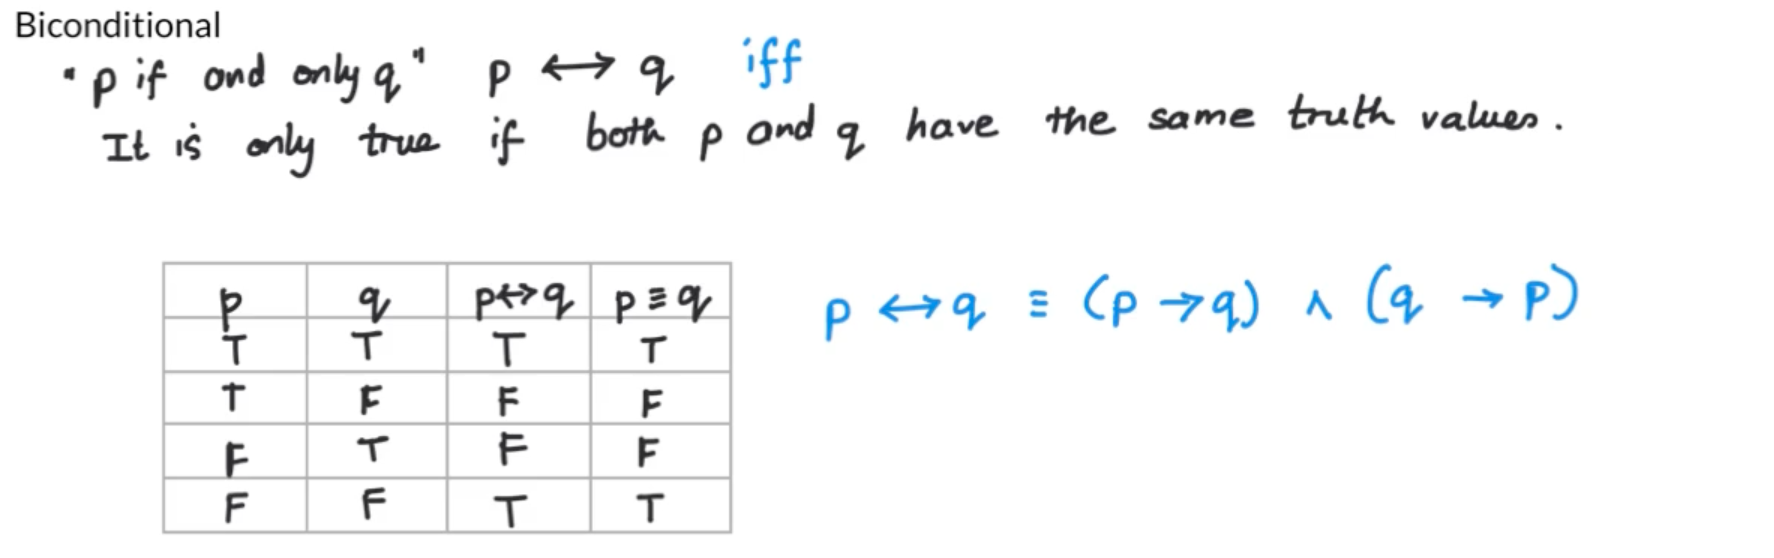 Biconditional
"p if and only q" p ↔ q iff
It is only true if both p and q have the same truth values.
p q p↔q p ≡ q
p ↔ q ≡ (p → q) ∧ (q → p)
T T T T
T F F F
F T F F
F F T T